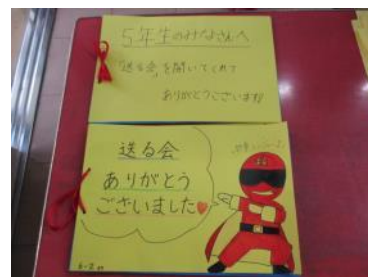 5年生のみなさんへ
「送る会」を開いてくれて
ありがとうございます!
送る会
ありがとう
ございました